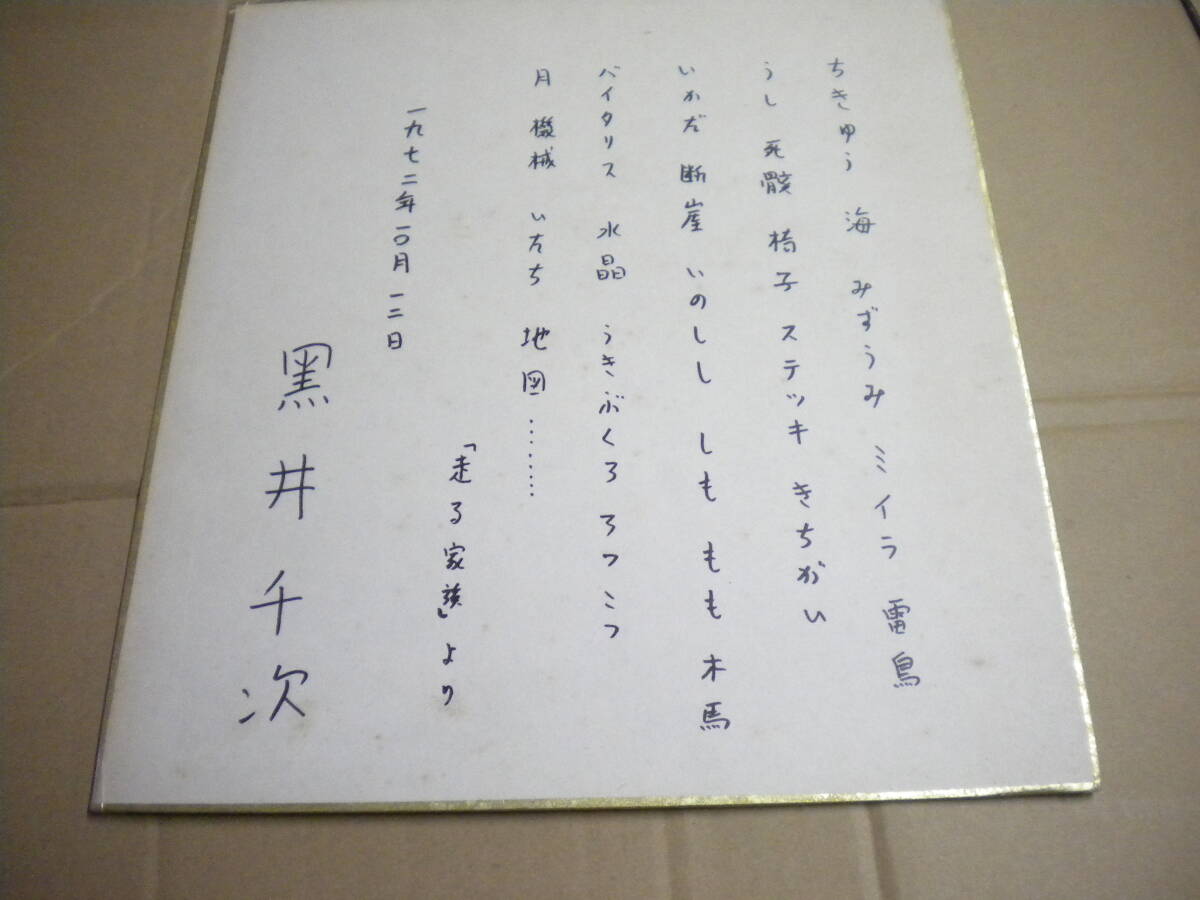 ちきゅう 海 みずうみ ミイラ 雷鳥
うし 死骸 椅子 ステッキ きちがい
いかだ 断崖 いのしし しも もも 木馬
バイタリス 水晶 うきぶくろ ろっこつ
月 機械 いたち 地図………
「走る家族」より
一九七二年一〇月一二日
黒井千次